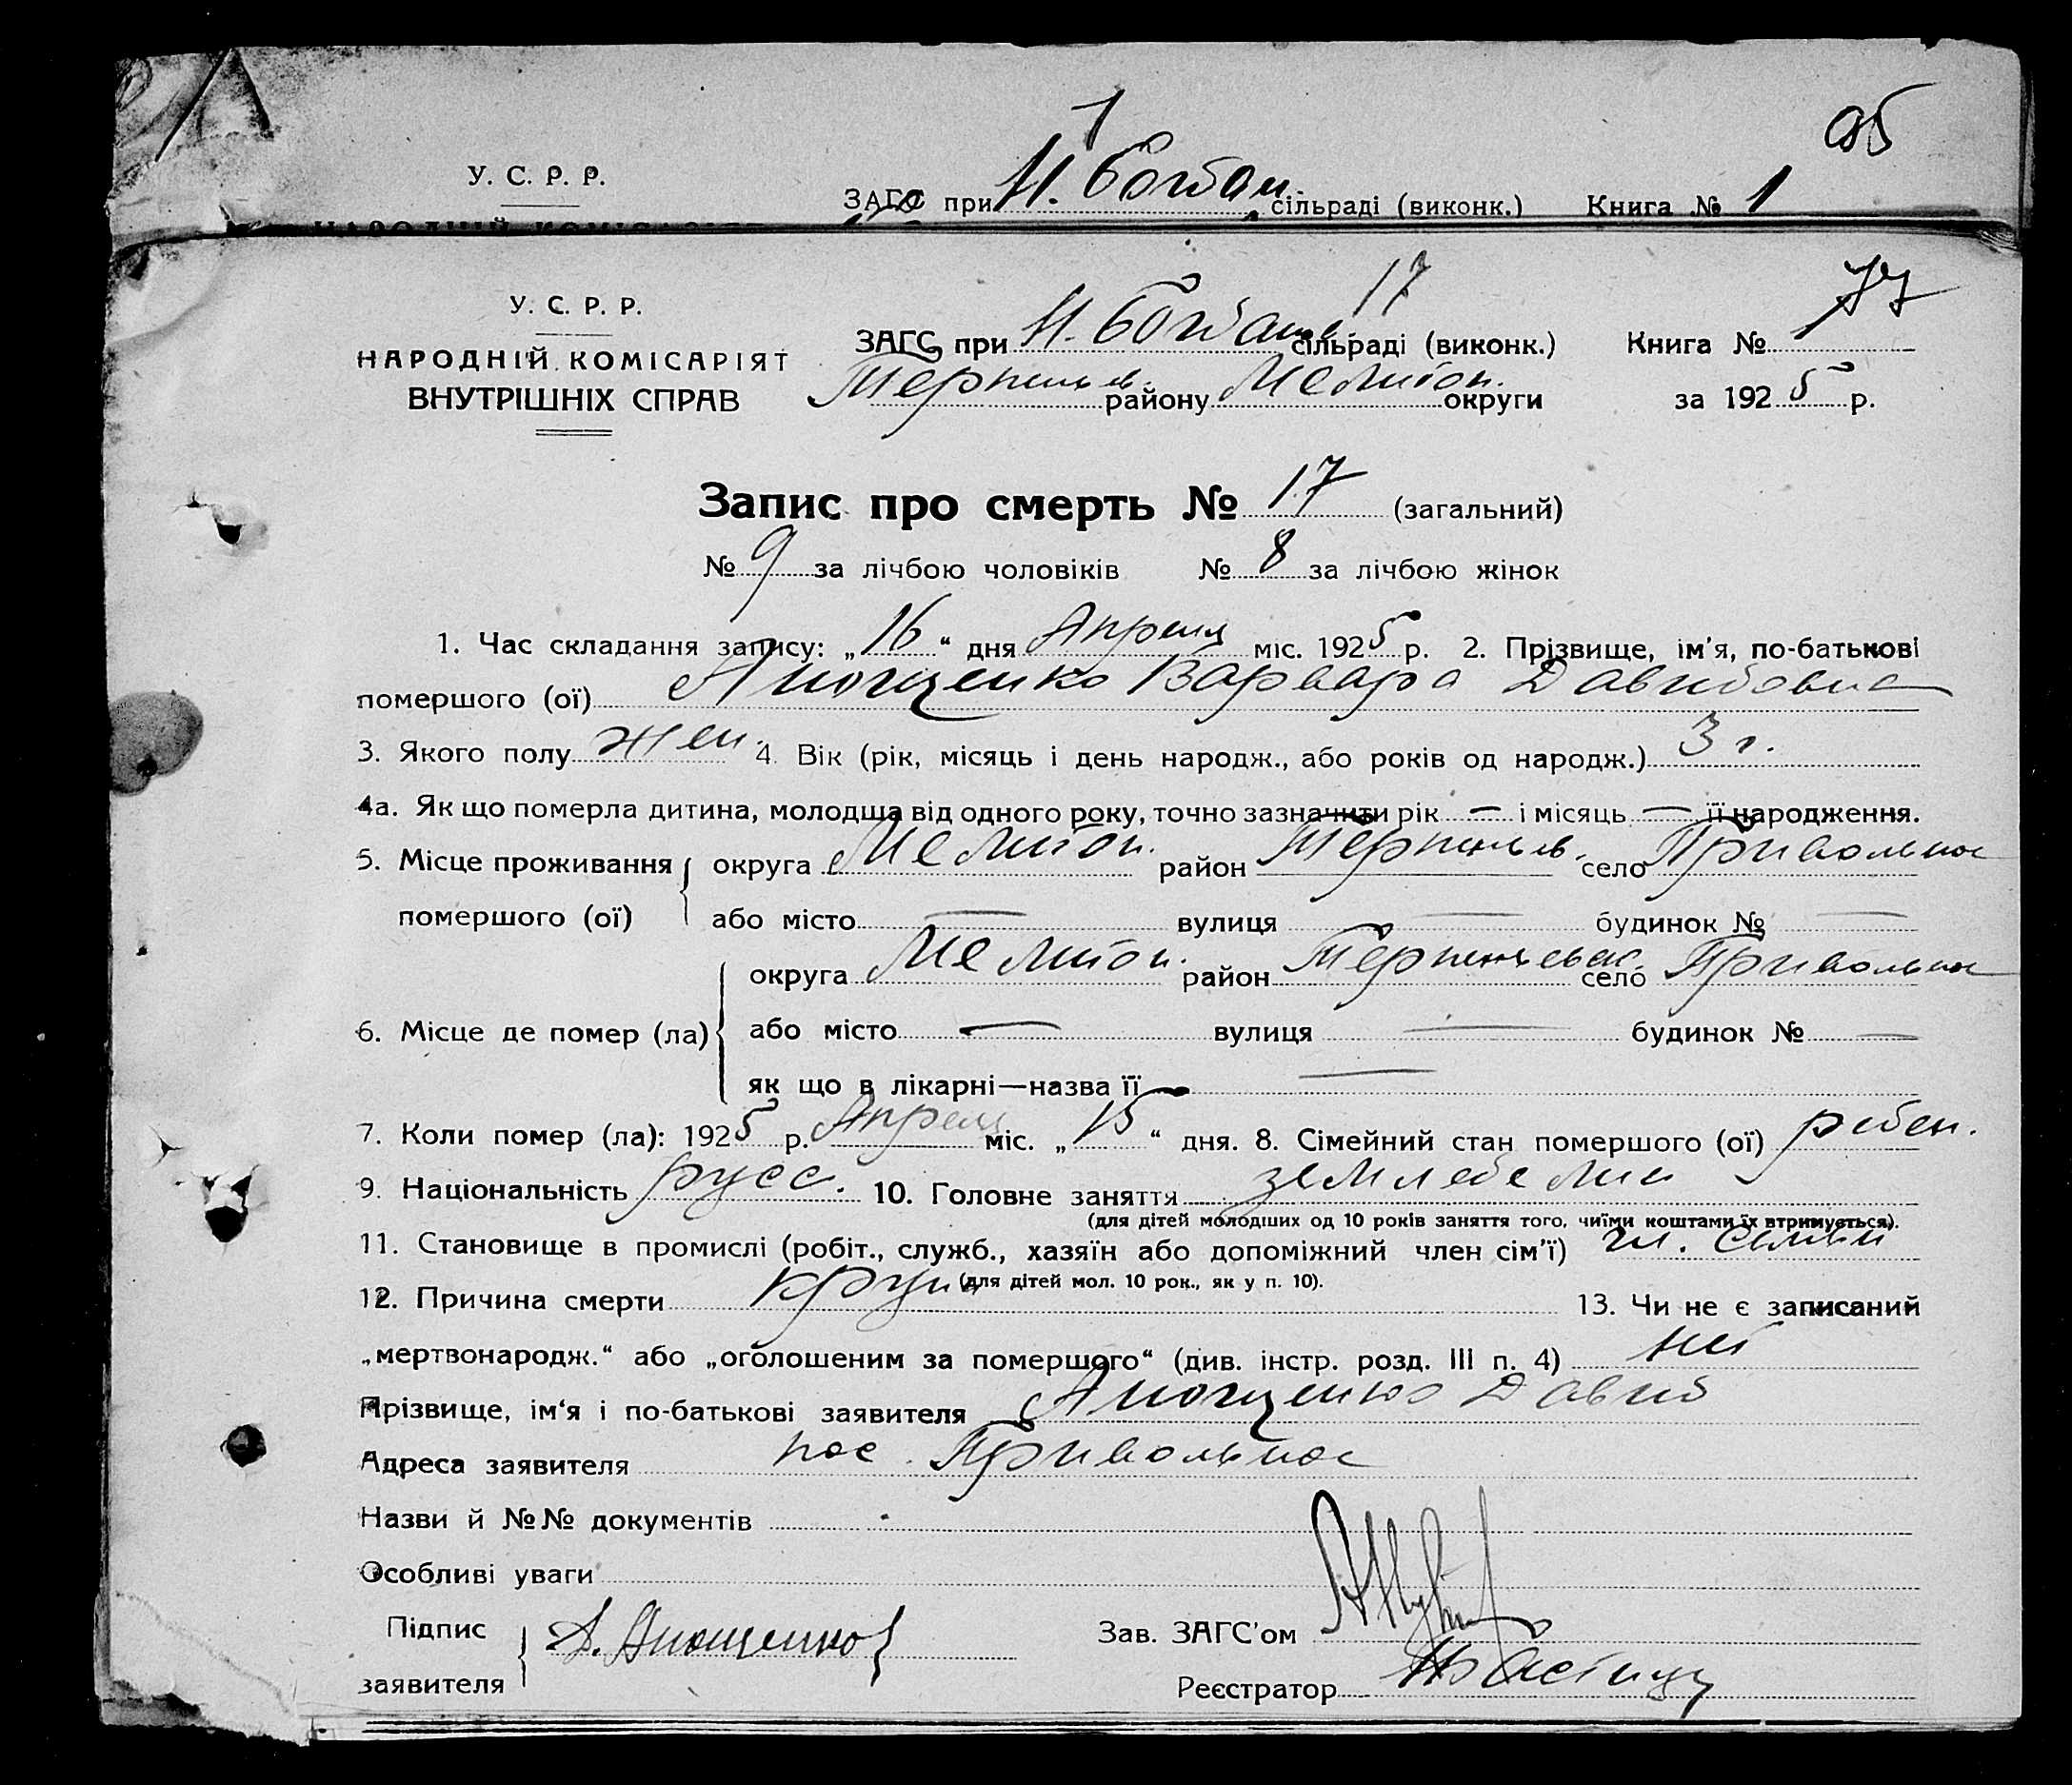 1
95
У. С. Р. Р.
ЗАГС при Н. Богдан. сільраді (виконк.) Книга № 1
НАРОДНІЙ КОМІСАРІЯТ
17
У. С. Р. Р.
ЗАГС при Н. Богдан. сільраді (виконк.) Книга № 77
НАРОДНІЙ КОМІСАРІЯТ
ВНУТРІШНІХ СПРАВ
Терпеньев. району Мелитоп. округи за 1925 р.
Запис про смерть № 17 (загальний)
№ 9 за лічбою чоловіків № 8 за лічбою жінок
1. Час складання запису: „16“ дня Апреля міс. 1925 р. 2. Прізвище, ім'я, по-батькові
помершого (ої) Анощенко Варвара Давидовна
3. Якого полу жен. 4. Вік (рік, місяць і день народж., або років од народж.) 3 г.
4а. Як що померла дитина, молодша від одного року, точно зазначити рік — і місяць — її народження.
5. Місце проживання округа Мелитоп. район Терпеньев. село Привольное
помершого (ої) або місто — вулиця — будинок № —
округа Мелитоп. район Терпеньевск. село Привольное
6. Місце де помер (ла) або місто — вулиця — будинок № —
як що в лікарні—назва її —
7. Коли помер (ла): 1925 р. Апреля міс. „15“ дня. 8. Сімейний стан помершого (ої) ребен.
9. Національність русс. 10. Головне заняття земледелии
(для дітей молодших од 10 років заняття того, чиїми коштами їх втримується).
11. Становище в промислі (робіт., служб., хазяїн або допоміжний член сім'ї) гл. семьи
(для дітей мол. 10 рок., як у п. 10).
12. Причина смерти круп 13. Чи не є записаний
„мертвонародж.“ або „оголошеним за помершого“ (див. інстр. розд. III п. 4) нет
Прізвище, ім'я і по-батькові заявителя Анощенко Давид
Адреса заявителя пос. Привольное
Назви й №№ документів
Особливі уваги
Підпис
заявителя Д. Анощенко
Зав. ЗАГС'ом
Реєстратор